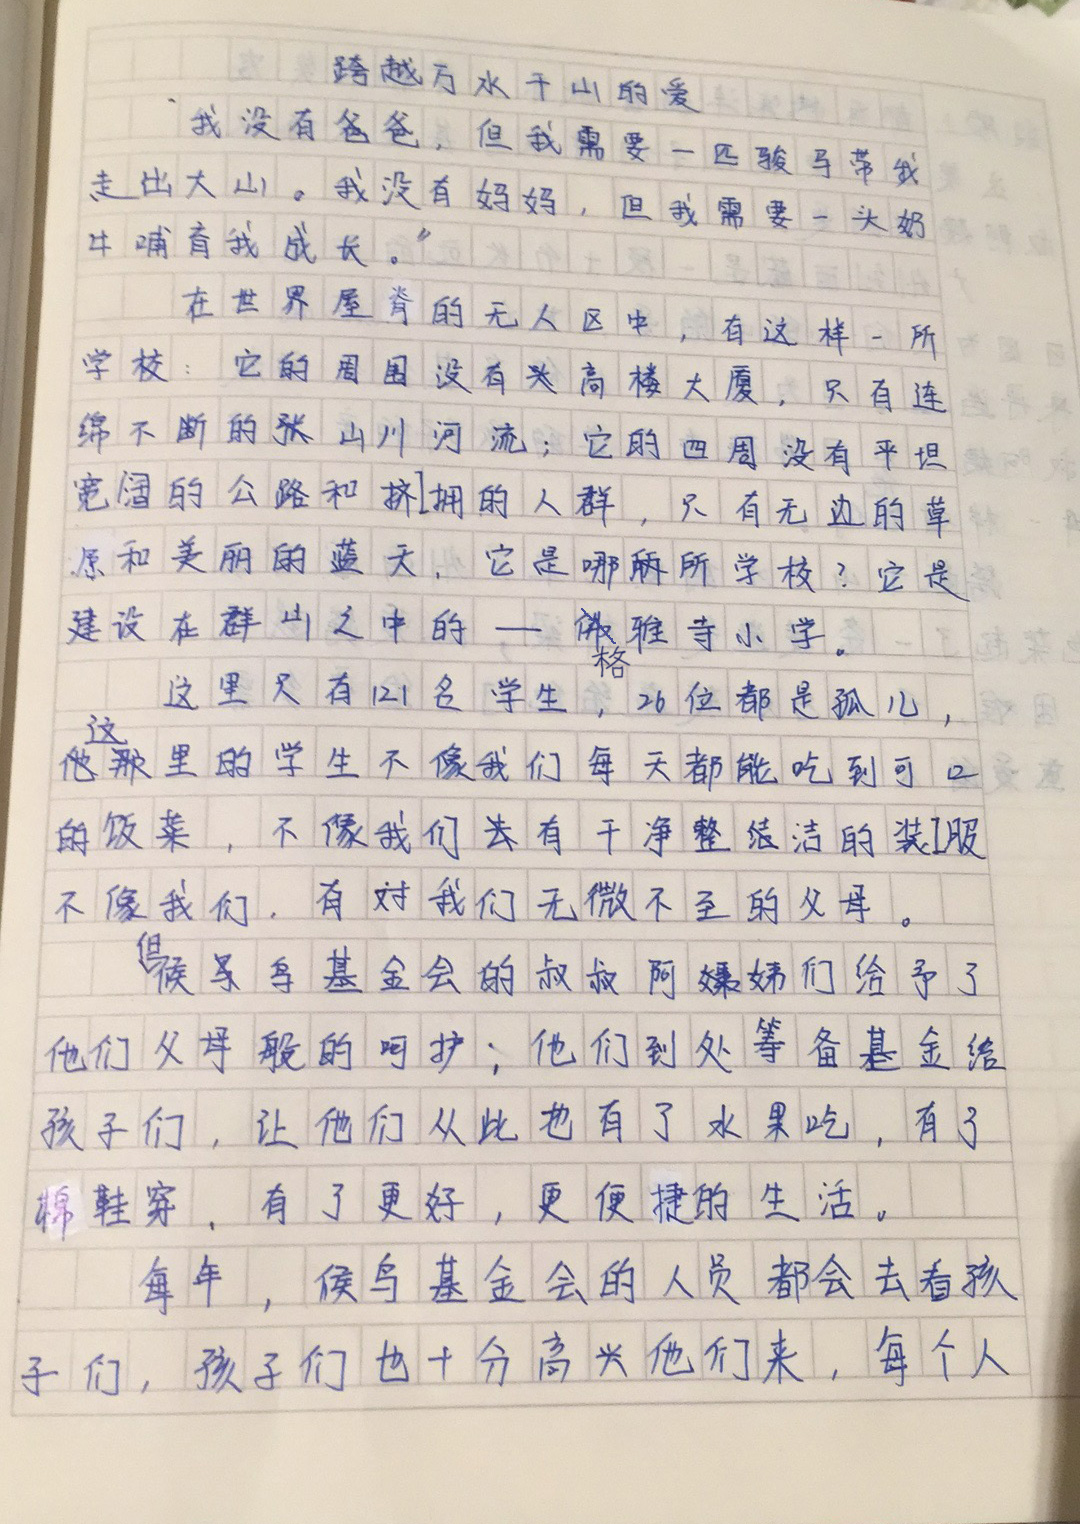 跨越万水千山的爱
“我没有爸爸，但我需要一匹骏马带我
走出大山。我没有妈妈，但我需要一头奶
牛哺育我成长。”
在世界屋脊的无人区中，有这样一所
学校：它的周围没有高楼大厦，只有连
绵不断的山川河流；它的四周没有平坦
宽阔的公路和挤拥的人群，只有无边的草
原和美丽的蓝天，它是哪所学校？它是
建设在群山之中的——格雅寺小学。
这里只有121名学生，26位都是孤儿，
这里的学生不像我们每天都能吃到可口
的饭菜，不像我们有干净整洁的装服
不像我们，有对我们无微不至的父母。
但候鸟基金会的叔叔阿姨们给予了
他们父母般的呵护；他们到处筹备基金给
孩子们，让他们从此也有了水果吃，有了
棉鞋穿，有了更好，更便捷的生活。
每年，候鸟基金会的人员都会去看孩
子们，孩子们也十分高兴他们来，每个人